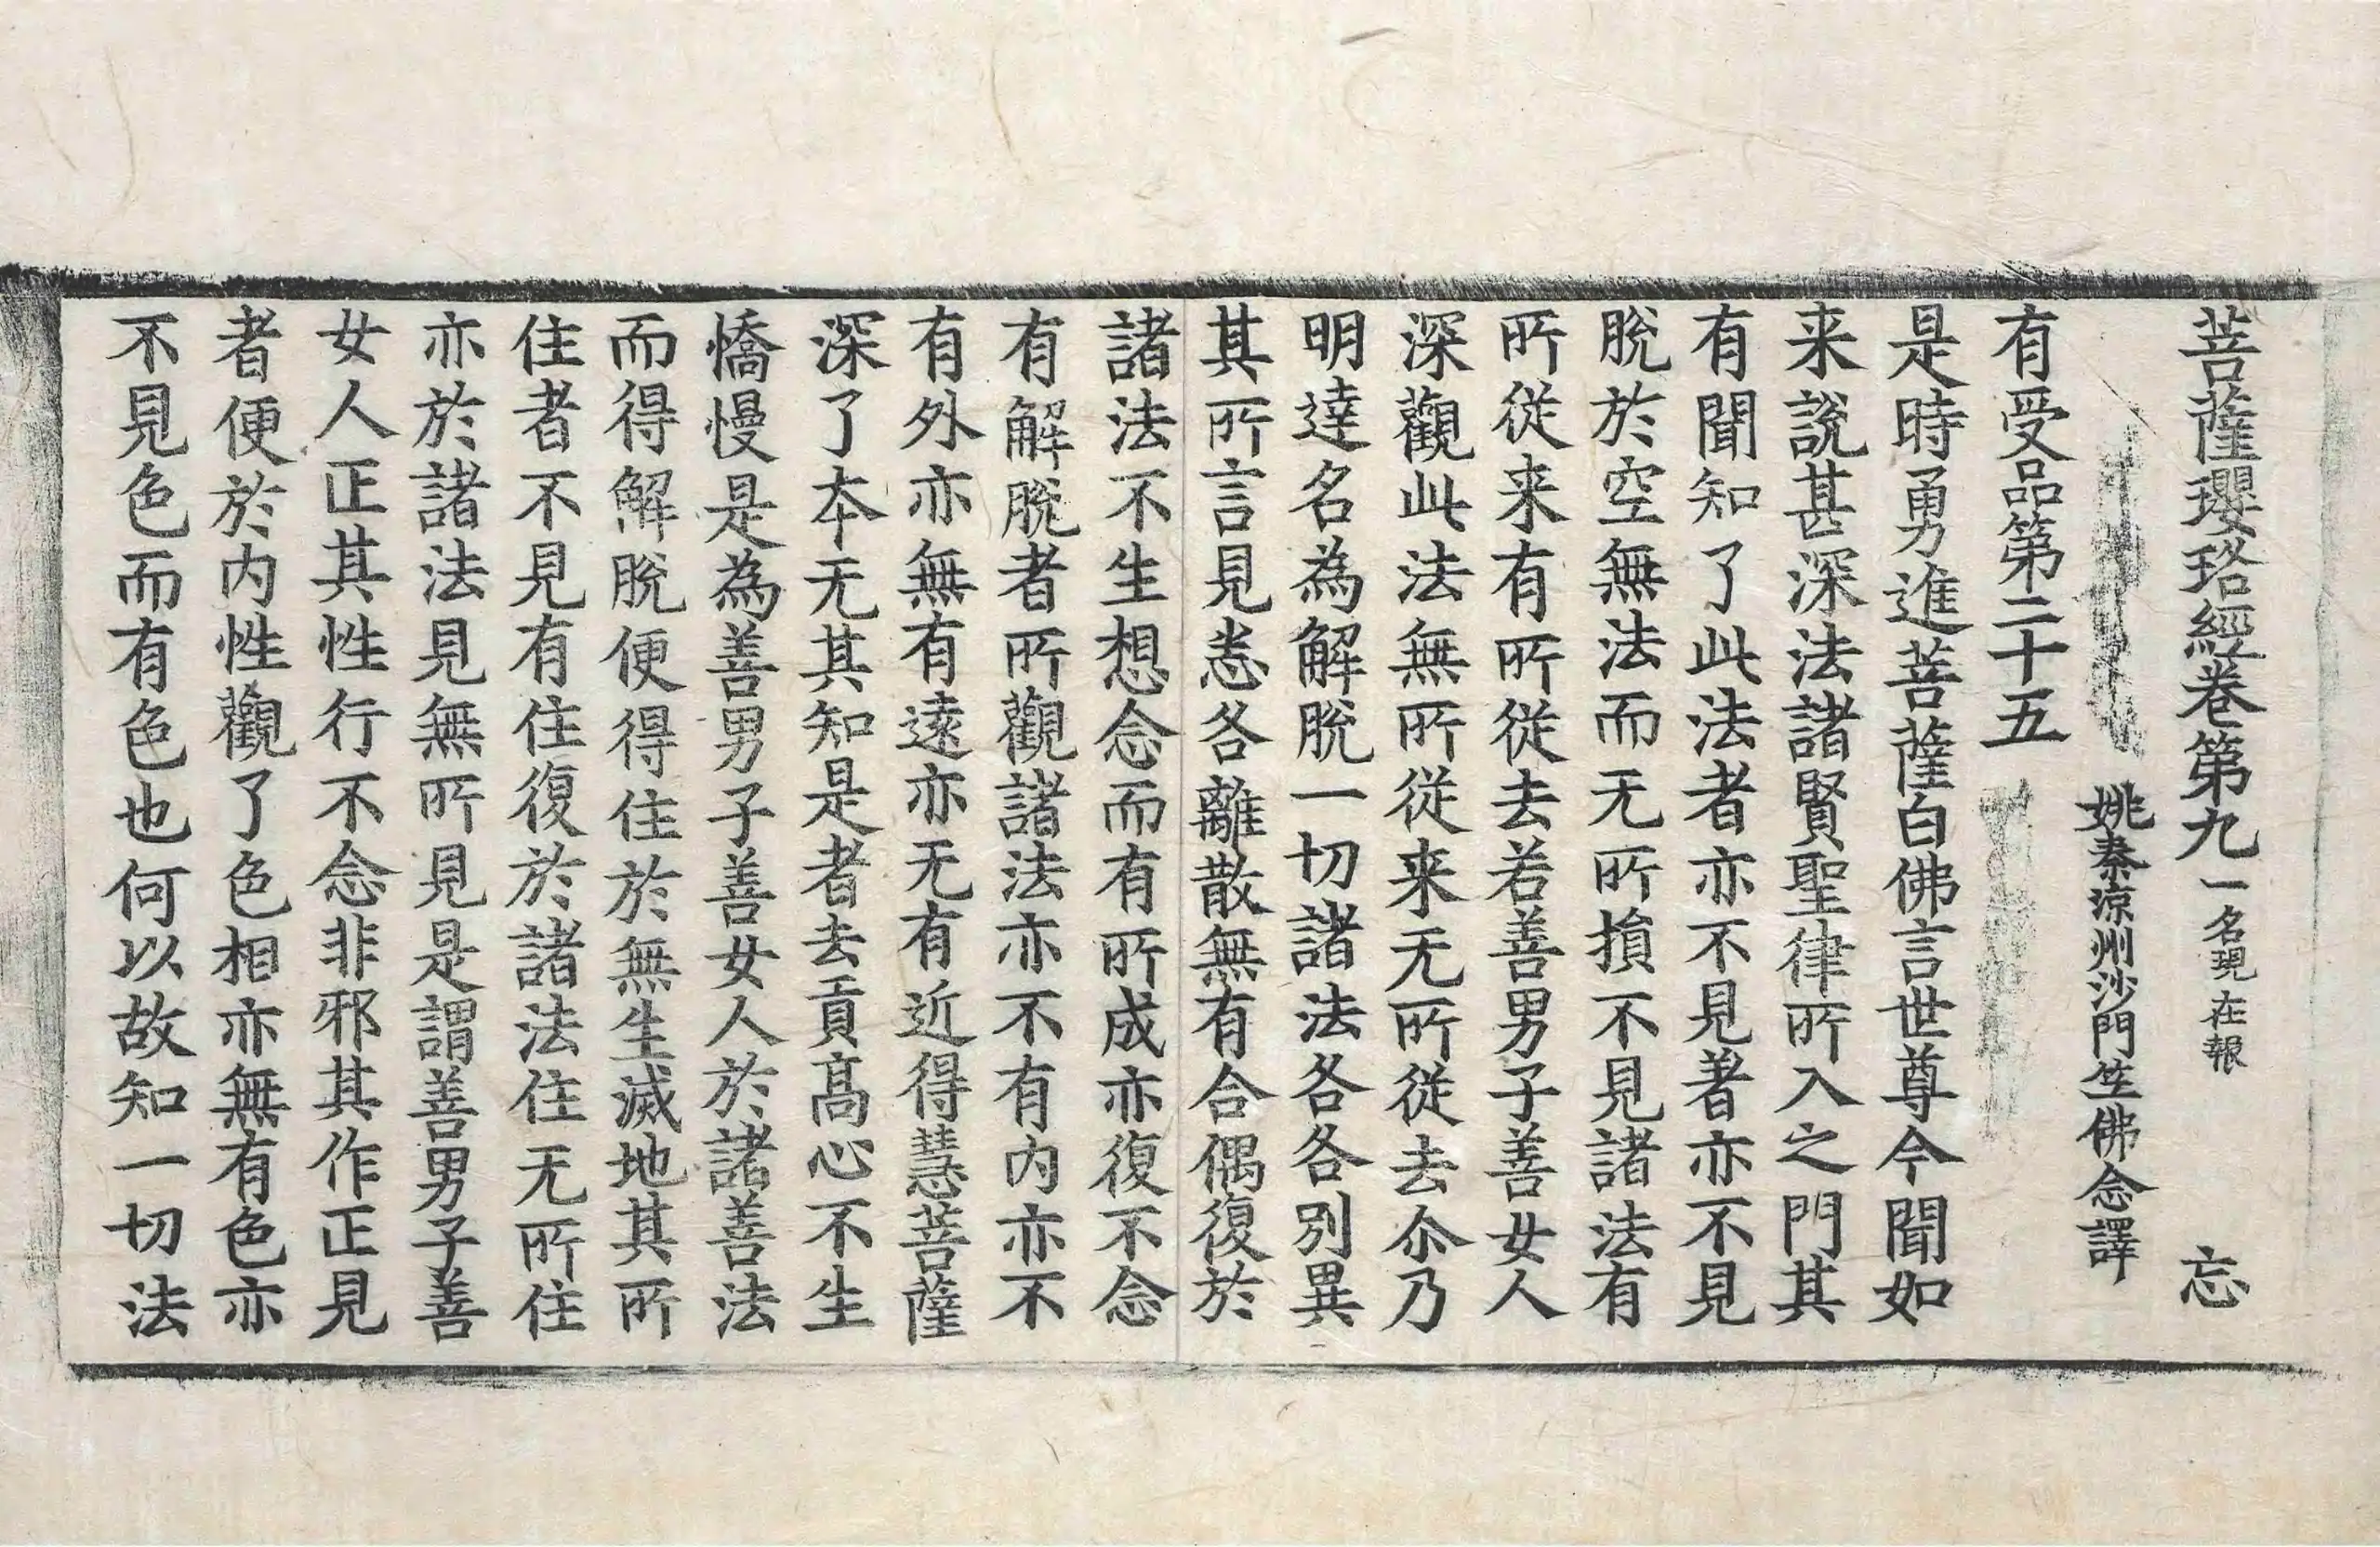 菩薩瓔珞經卷第九 一名現在報 忘
姚秦涼州沙門竺佛念譯
有受品第二十五
是時勇進菩薩白佛言世尊今聞如
来說甚深法諸賢聖律所入之門其
有聞知了此法者亦不見著亦不見
脫於空無法而无所損不見諸法有
所從来有所從去若善男子善女人
深觀此法無所從来无所從去尒乃
明達名為解脫一切諸法各各別異
其所言見悉各離散無有合偶復於
諸法不生想念而有所成亦復不念
有解脫者所觀諸法亦不有内亦不
有外亦無有遠亦无有近得慧菩薩
深了夲无其知是者去貢髙心不生
憍慢是為善男子善女人於諸善法
而得解脫便得住於無生滅地其所
住者不見有住復於諸法住无所住
亦於諸法見無所見是謂善男子善
女人正其性行不念非邪其作正見
者便於内性觀了色相亦無有色亦
不見色而有色也何以故知一切法